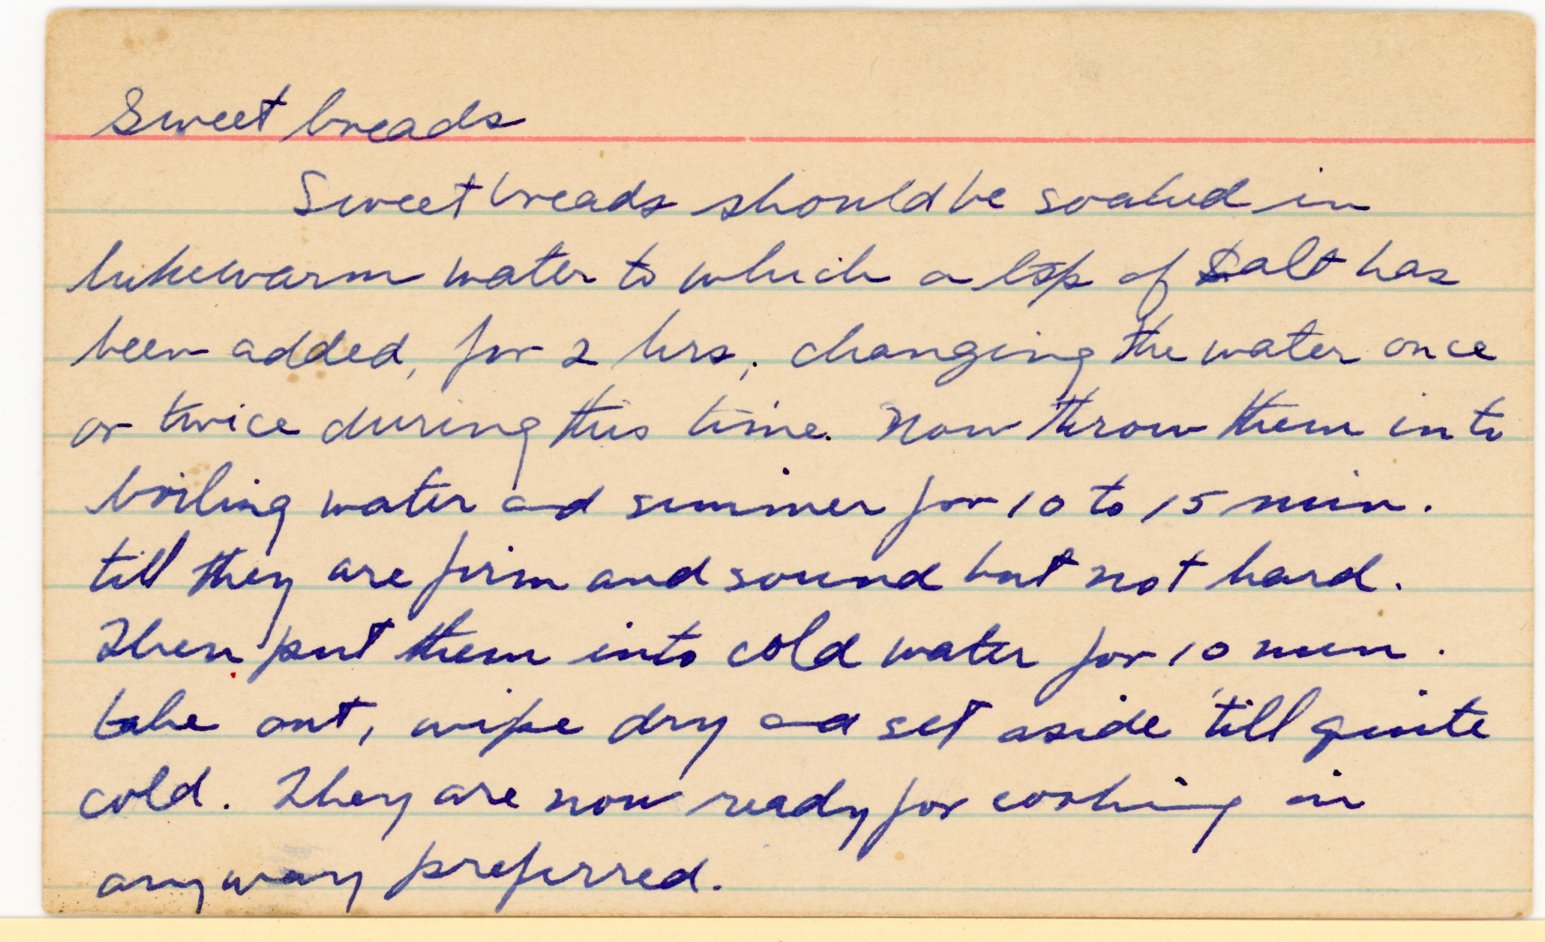 Sweet breads
Sweetbreads should be soaked in
lukewarm water to which a tsp of Salt has
been added, for 2 hrs, changing the water once
or twice during this time. Now throw them into
boiling water and simmer for 10 to 15 min.
till they are firm and sound but not hard.
Then put them into cold water for 10 min.
take out, wipe dry and set aside 'till quite
cold. They are now ready for cooking in
any way preferred.